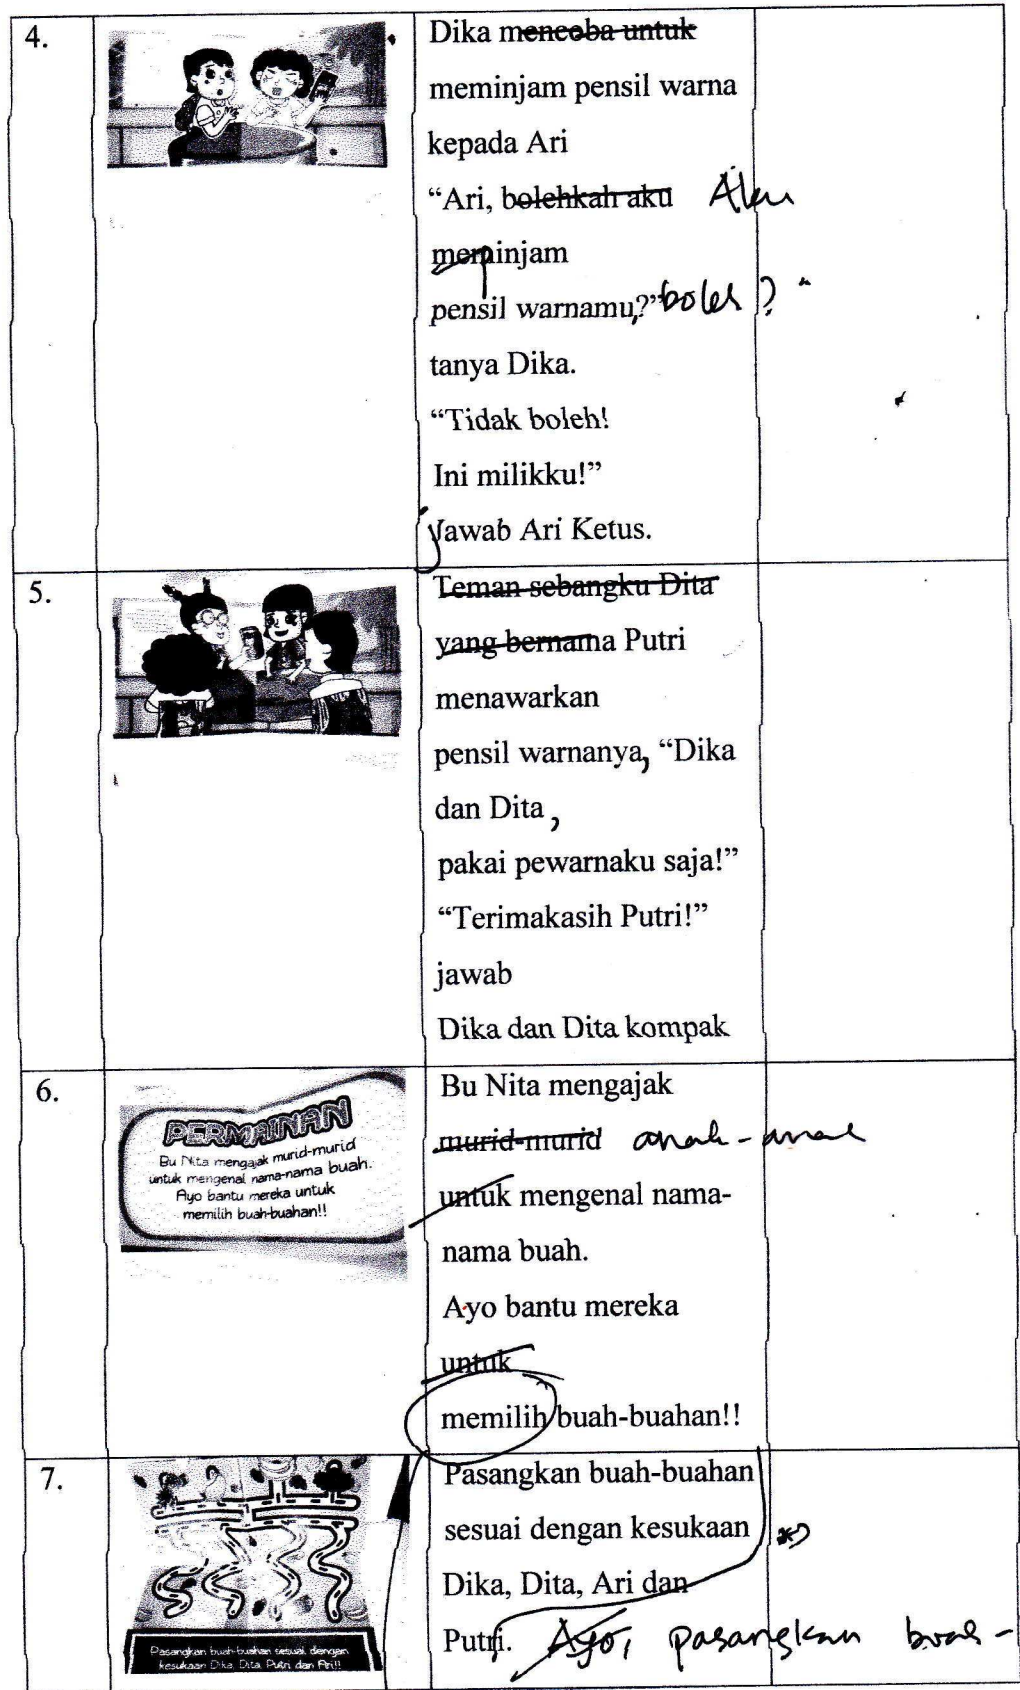 4.
Dika mencoba untuk
meminjam pensil warna
kepada Ari
“Ari, bolehkah aku Aku
meminjam
pensil warnamu,?” boleh?"
tanya Dika.
“Tidak boleh!
Ini milikku!”
j
Jawab Ari Ketus.
5.
Teman sebangku Dita
yang bernama Putri
menawarkan
pensil warnanya, “Dika
dan Dita,
pakai pewarnaku saja!”
“Terimakasih Putri!”
jawab
Dika dan Dita kompak
6.
PERMAINAN
Bu Nita mengajak murid-murid
untuk mengenal nama-nama buah.
Ayo bantu mereka untuk
memilih buah-buahan!!
Bu Nita mengajak
murid-murid anak-anak
untuk mengenal nama-
nama buah.
Ayo bantu mereka
untuk
memilih buah-buahan!!
7.
Pasangkan buah-buahan sesuai dengan
kesukaan Dika, Dita, Putri dan Ari!!
Pasangkan buah-buahan
sesuai dengan kesukaan
Dika, Dita, Ari dan
Putri. Ayo, pasangkan buah-